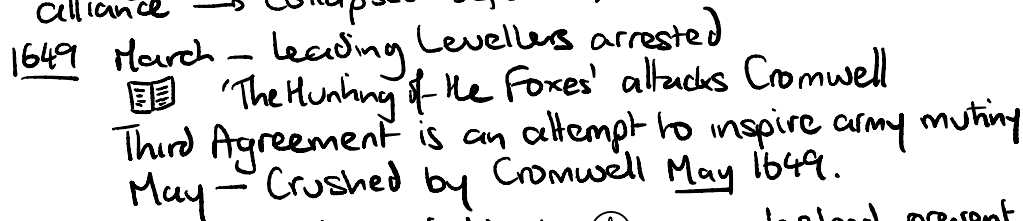 alliance → collapsed
1649 March – Leading Levellers arrested
'The Hunting of the Foxes' attacks Cromwell
Third Agreement is an attempt to inspire army mutiny
May – Crushed by Cromwell May 1649.